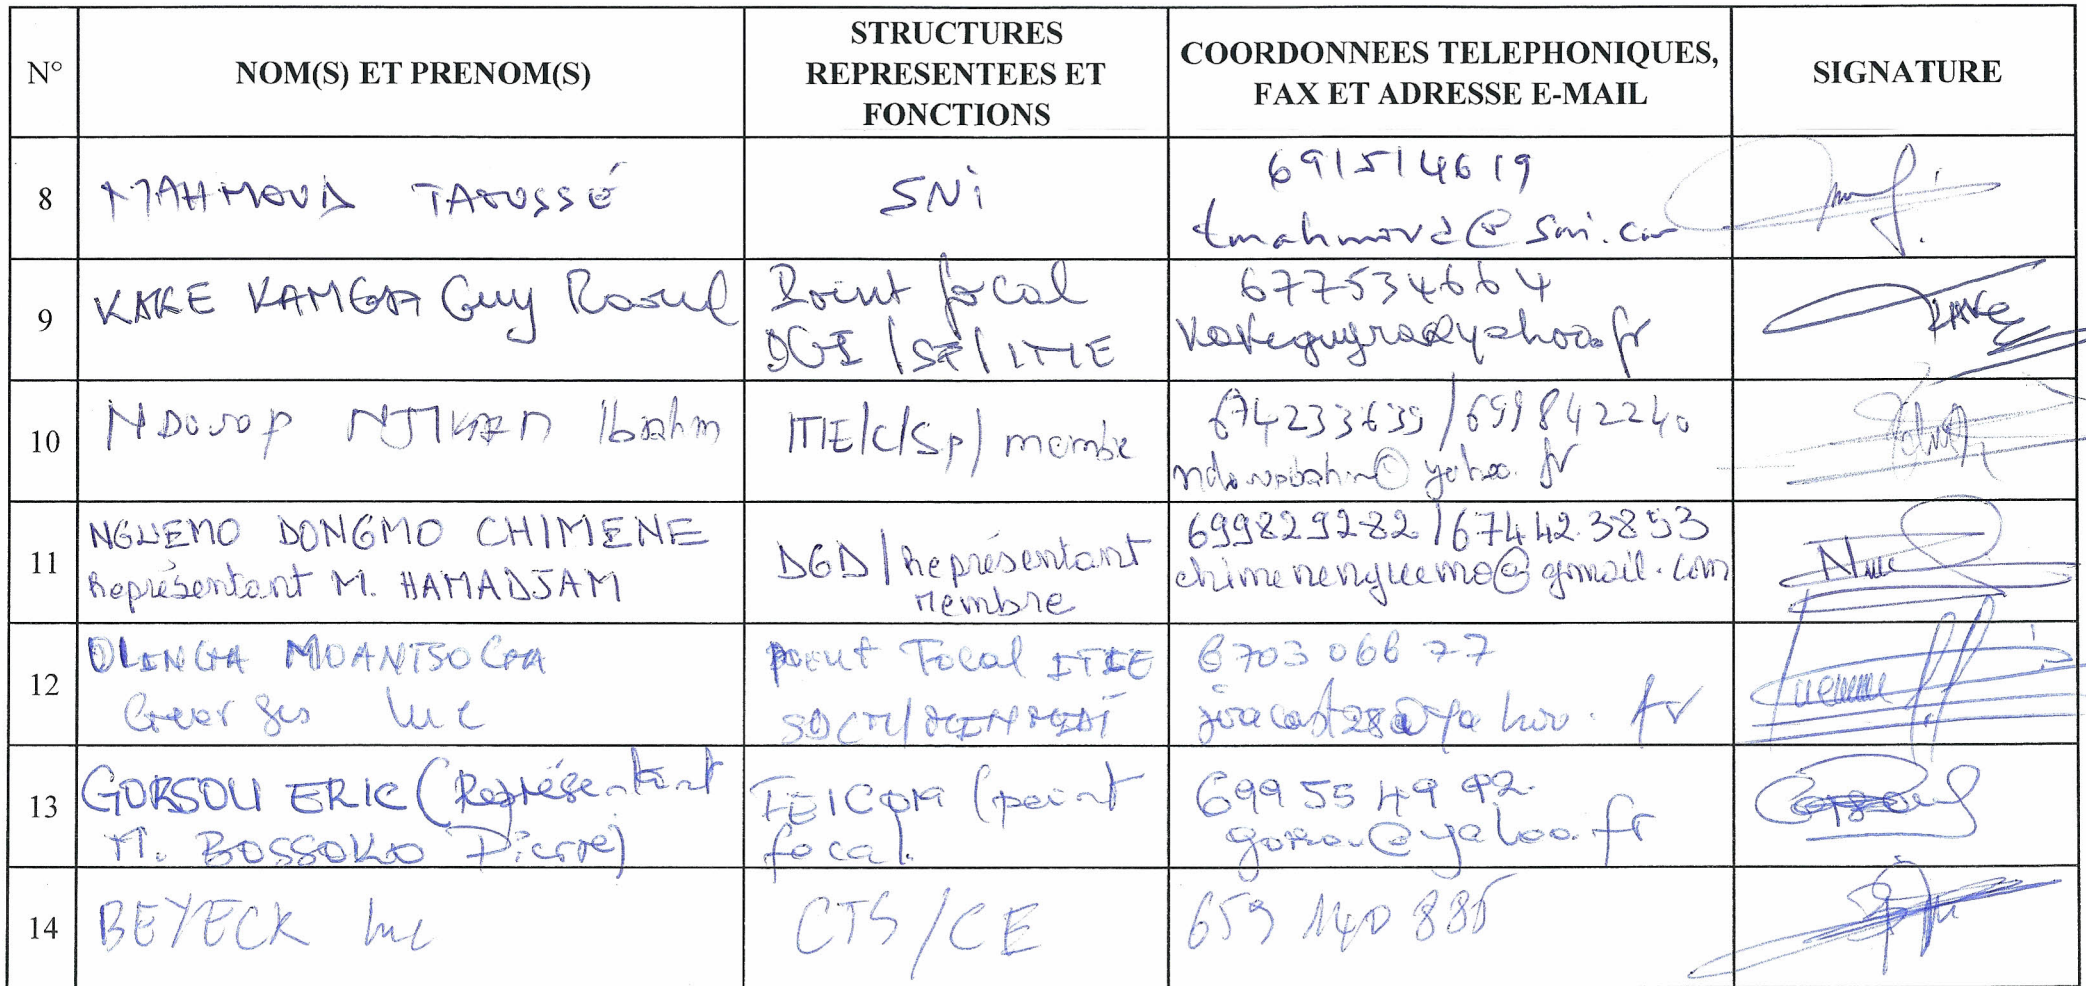 N°
NOM(S) ET PRENOM(S)
STRUCTURES
REPRESENTEES ET
FONCTIONS
COORDONNEES TELEPHONIQUES,
FAX ET ADRESSE E-MAIL
SIGNATURE
8
MAHMOUD TAOUSSÉ
SNi
691514619
tmahmoud@sni.cm
9
KAKE KAMGA Guy Raoul
Point focal
DGI/SP/ITIE
677534664
kakeguyra@yahoo.fr
KAKE
10
Ndoup NJIKAM Ibrahim
ITIE/C/SP/ membre
674233639/699842240
@yahoo.fr
11
NGUEMO DONGMO CHIMENE
Représentant M. HAMADJAM
DGD/Représentant
Membre
699829282/674423853
chimenenguemo@gmail.com
12
OLINGA MOANTSOGA
Georges Luc
point Focal ITIE
6703066 77
13
GORSOU ERIC (Représentant
M. BOSSOKO Pierre)
FEICOM (point
focal.
699 55 49 92.
gorsou@yahoo.fr
14
BEYECK Luc
CTS/CE
659 140 885